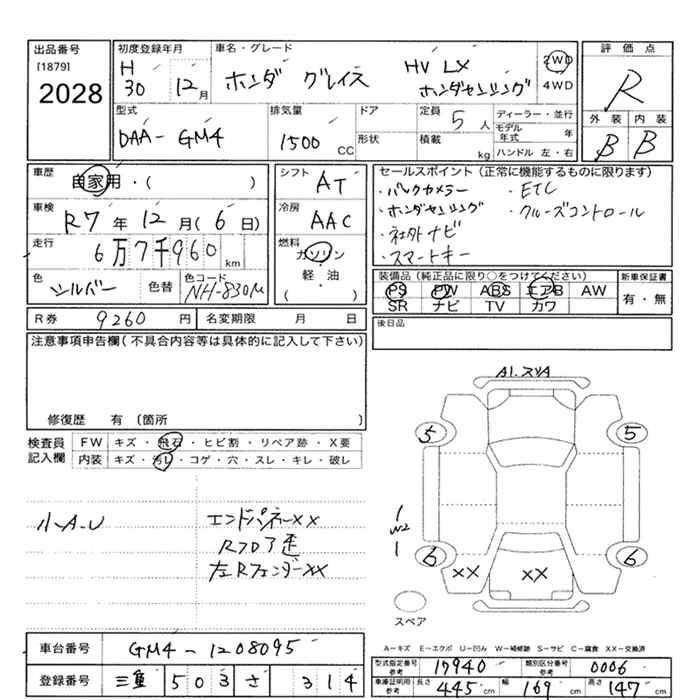 出品番号
[1879]
2028
初度登録年月
H
30 12月
車名・グレード
ホンダ グレイス HV LX
ホンダセンシング
2WD
4WD
評価点
R
外装 内装
B B
型式
DAA-GM4
排気量
1500 CC
ドア
形状
定員 5人
積載 kg
ディーラー・並行
モデル年式 年
ハンドル 左・右
車歴
自家用・( )
車検
R7年12月(6日)
走行
6万7千960km
色
シルバー
色替
色コード
NH-830M
シフト
AT
冷房
AAC
燃料
ガソリン
・
軽・油
( )
セールスポイント(正常に機能するものに限ります)
・バックカメラー ・ETC
・ホンダセンシング ・クルーズコントロール
・社外ナビ
・スマートキー
装備品(純正品に限り○をつけてください)
PS PW ABS エアB AW
SR ナビ TV カワ
新車保証書
有・無
R券 9260円
名変期限 月 日
後日品
注意事項申告欄(不具合内容等は具体的に記入して下さい)
修復歴 有 〔箇所 〕
検査員
記入欄
FW キズ・飛石・ヒビ割・リペア跡・X要
内装 キズ・汚レ・コゲ・穴・スレ・キレ・破レ
小A-U
エンドパネラーXX
Rフロア歪
左RフェンダーXX
A1.スリA
5 5
1
W2
1
6 6
XX XX
スペア
A−キズ E−エクボ U−凹み W−補修跡 S−サビ C−腐食 XX−交換済
車台番号 GM4-1208095
登録番号 三重 503 さ 314
型式指定番号
参考
17940
類別区分番号
参考
0006
車庫証明用
参考
長さ 445cm 幅 169cm 高さ 147cm